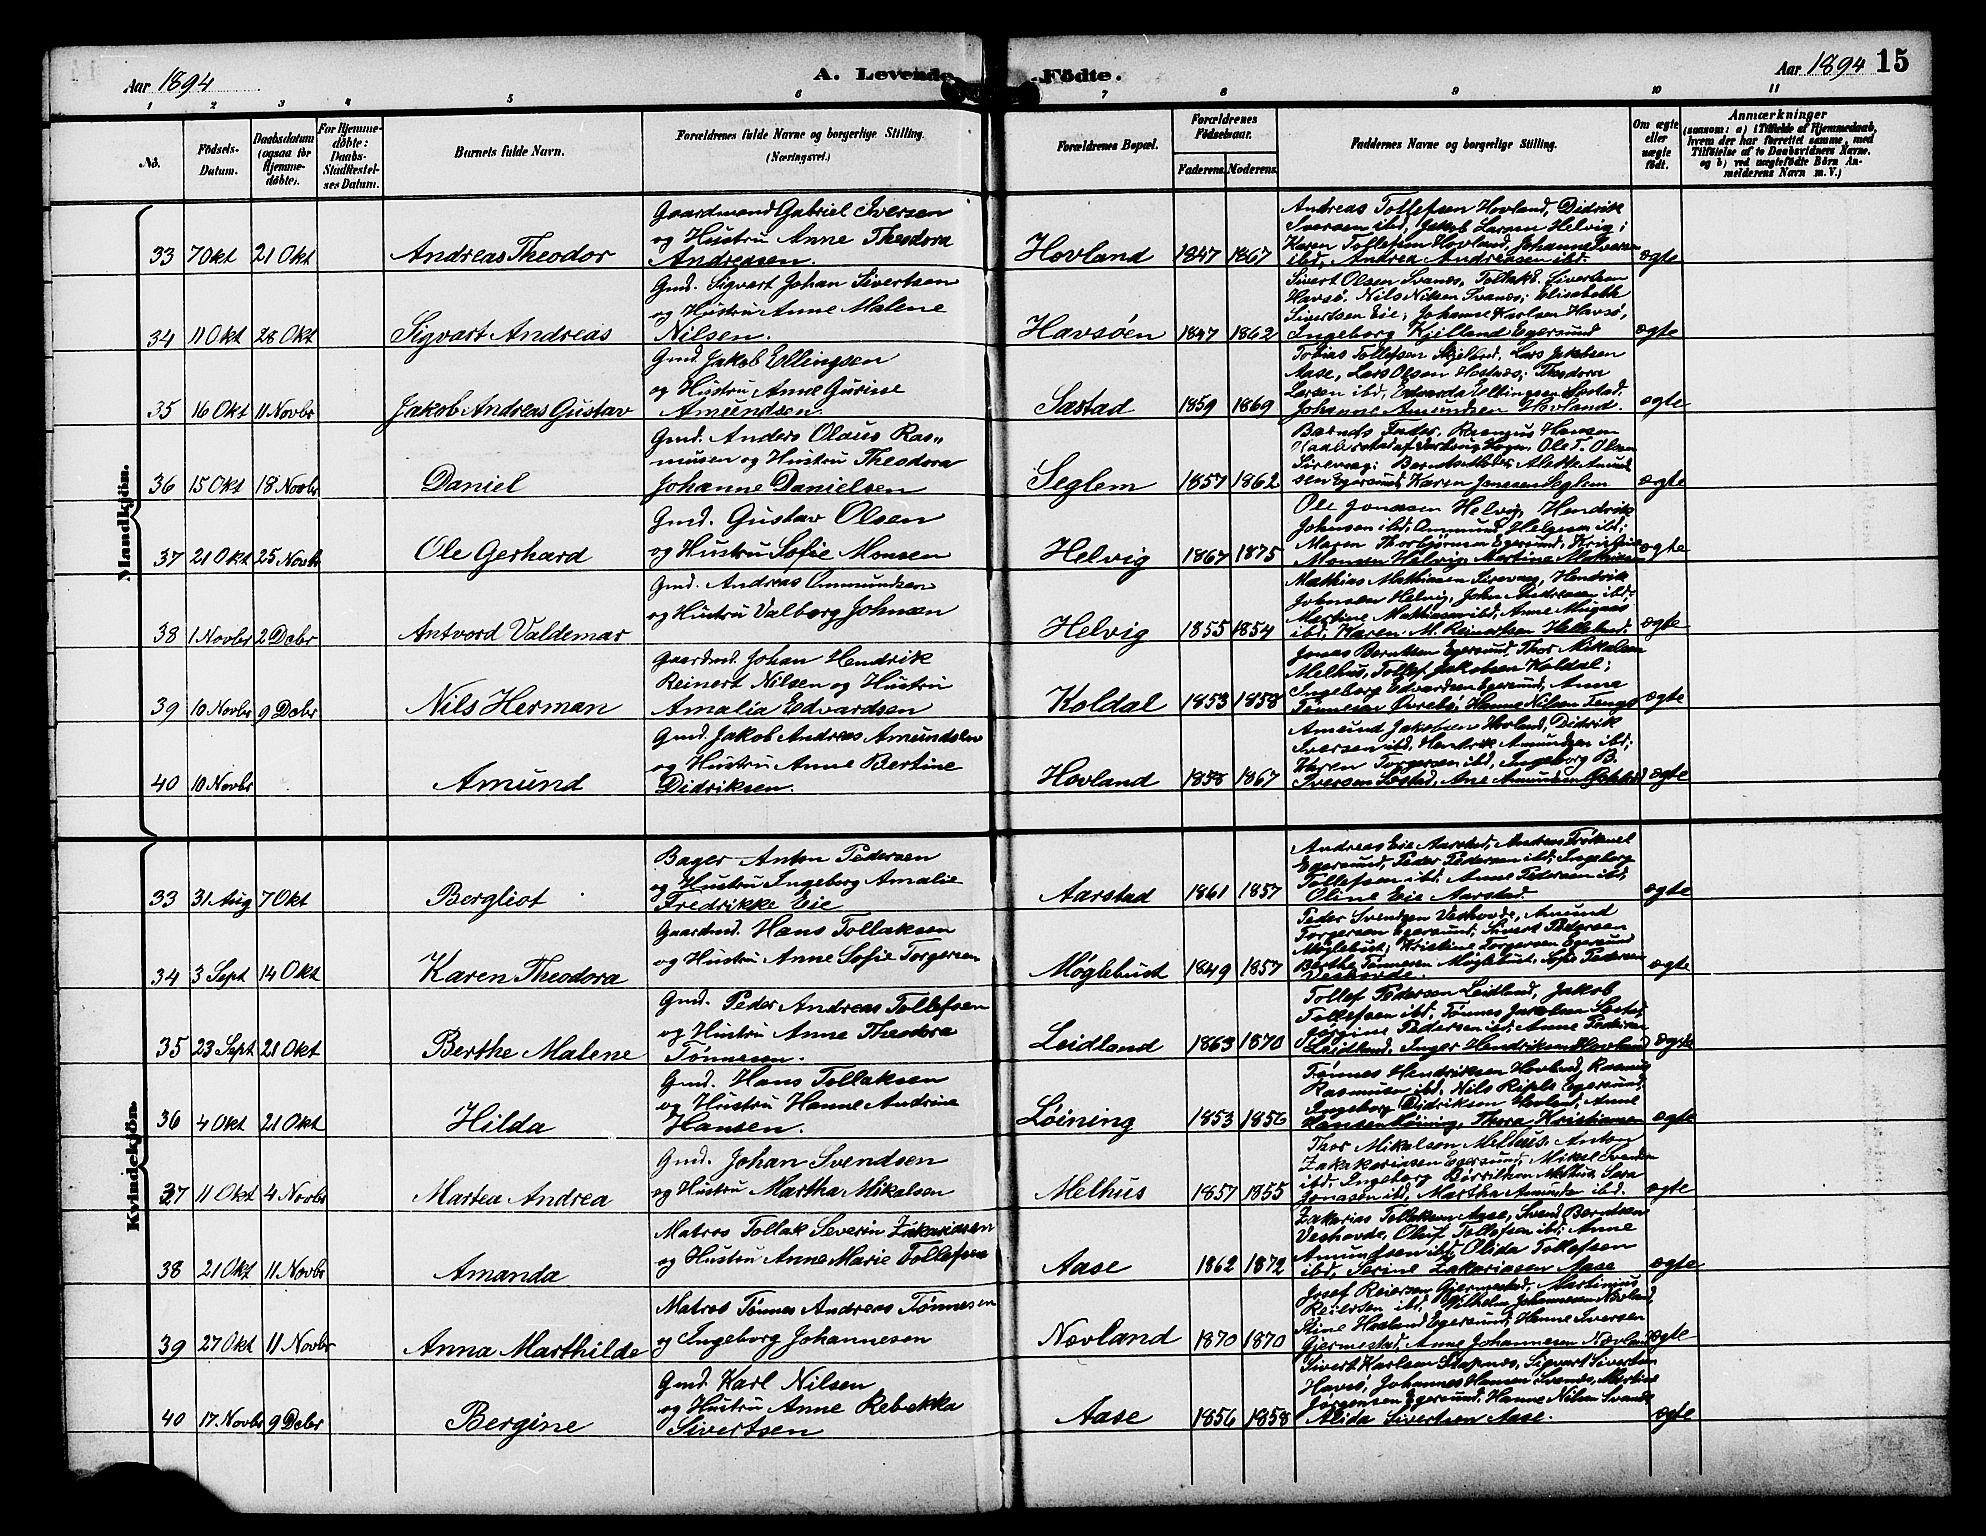 Aar 1894
A. Levende Födte.
Aar 1894 15
1 2 3 4 5 6 7 8 8 9 10 11
No.
Födsels-Datum.
Daabsdatum (ogsaa for Hjemmedöbte).
For Hjemmedöbte: Daabs-Stadfæstelses Datum.
Barnets fulde Navn.
Forældrenes fulde Navne og borgerlige Stilling. (Næringsvei.)
Forældrenes Bopæl.
Forældrenes Födselsaar.
Faderens. Moderens.
Faddernes Navne og borgerlige Stilling.
Om ægte eller uægte födt.
Anmærkninger
(saasom: a) i Tilfælde af Hjemmedaab, hvem der har forrettet samme, med Tilföielse af to Daabsvidners Navne, og b) ved uægtefödte Börn Anmelderens Navn m. V.)
Mandkjön.
33 7 Okt 21 Okt Andreas Theodor
Gaardmand Gabriel Iversen
og Hustru Anne Theodora
Andreasen.
Hovland 1847 1867
Andreas Tollefsen Hovland, Didrik
Iversen ibd, Jakob Larsen Helvig;
Karen Tollefsen Hovland, Johanne Iversen
ibd, Andrea Andreasen ibd.
ægte
34 11 Okt 28 Okt Sigvart Andreas
Gmd. Sigvart Johan Sivertsen
og Hustru Anne Malene
Nilsen.
Havsöen 1847 1862
Sivert Olsen Svanes, Tollak B. Sivertsen
Havsö, Nils Nilsen Svanes; Elisabeth
Sivertsen Eie, Johanne Karlsen Havsö,
Ingeborg Kjelland Egersund
ægte
35 16 Okt 11 Novbr Jakob Andreas Gustav
Gmd. Jakob Ellingsen
og Hustru Anne Gurine
Amundsen.
Sæstad 1859 1869
Tobias Tollefsen Skjelbred, Lars Jakobsen
Aase, Lars Olsen Hostnes; Theodora
Larsen ibd, Edvarda Ellingsen Sæstad,
Johanne Amundsen Hovland.
ægte
36 15 Okt 18 Novbr Daniel
Gmd. Anders Olaus Ras-
musen og Hustru Theodora
Johanne Danielsen
Seglem 1857 1862
Barnets Fader, Rasmus Hansen
Ole T. Olsen
Sirevaag; Barnets Moder, Alette Amund
sen Egersund, Karen Jonassen Seglem
ægte
37 21 Okt 25 Novbr Ole Gerhard
Gmd. Gustav Olsen
og Hustru Sofie Monsen
Helvig 1867 1875
Ole Jonassen Helvig, Hendrik
Johnsen ibd, Ommund Helgesen ibd;
Maren Thorbjörnsen Egersund, Kristine
Monsen Helvig, Martine Mathiasen
ægte
38 1 Novbr 2 Debr Antvord Valdemar
Gmd. Andreas Ommundsen
og Hustru Valborg Johnsen
Helvig 1855 1854
Mathias Mathiasen Sirevaag, Hendrik
Johnsen Helvig, John Andreasen ibd.
Martine Mathiasen ibd, Anne
ibd, Karen M. Reinertsen Helleland.
ægte
39 10 Novbr 9 Debr Nils Herman
Gaardmd. Johan Hendrik
Reinert Nilsen og Hustru
Amalia Edvardsen
Koldal 1853 1858
Jonas Berntsen Egersund, Thor Mikalsen
Melhus, Tollef Jakobsen Koldal;
Ingeborg Edvardsen Egersund, Anne
Tönnesen Övrebö, Hanne Nilsen Tengs
ægte
40 10 Novbr Amund
Gmd. Jakob Andreas Amundsen
og Hustru Anne Bertine
Didriksen.
Hovland 1858 1867
Amund Jakobsen Hovland, Didrik
Iversen ibd, Hendrik Amundsen ibd;
Karen Torgersen ibd, Ingeborg B.
Iversen Sæstad, Ane Amundsen
ægte
Kvindekjön.
33 31 Aug 7 Okt Bergliot
Bager Anton Pedersen
og Hustru Ingeborg Amalie
Fredrikke Eie
Aarstad 1861 1857
Andreas Eie Aarstad, Andreas
Egersund, Peder Pedersen ibd; Ingeborg
Tollefsen ibd, Anne Pedersen ibd,
Oline Eie Aarstad.
ægte
34 3 Sept 14 Okt Karen Theodora
Gaardmd. Hans Tollaksen
og Hustru Anne Sofie Torgersen
Möglebust 1849 1857
Peder Svendsen Veshovde, Amund
Torgersen Egersund, Sivert Pedersen
Möglebust; Kristine Torgersen Egersund
Berthe Tönnesen Möglebust, Sofie Pedersen
Veshovde.
ægte
35 23 Sept 21 Okt Berthe Malene
Gmd. Peder Andreas Tollefsen
og Hustru Anne Theodora
Tönnesen.
Leidland 1863 1870
Tollef Pedersen Leidland, Jakob
Tollefsen ibd, Tönnes Jakobsen
Jörgine Pedersen ibd, Anne Pedersen
Leidland, Inger Hendriksen Hovland
ægte
36 4 Okt 21 Okt Hilda
Gmd. Hans Tollaksen
og Hustru Hanne Andrine
Hansen.
Löining 1853 1856
Tönnes Hendriksen Hovland, Rasmus
Rasmusen ibd, Nils Egersund,
Ingeborg Didriksen Hovland, Anne
Hansen Löining, Thora Kristiansen
ægte
37 11 Okt 4 Novbr Martea Andrea
Gmd. Johan Svendsen
og Hustru Martha Mikalsen
Melhus 1857 1855
Thor Mikalsen Melhus, Anton
Zakariasen Egersund, Mikal Svendsen
ibd, Ingeborg Melhus, Sara
Jonasen ibd, Martha Amundsen ibd.
ægte
38 21 Okt 11 Novbr Amanda
Matros Tollak Severin Zakariasen
og Hustru Anne Marie Tollefsen
Aase 1862 1872
Zakarias Tollaksen Aase, Svend Berntsen
Veshovde, Oluf Tollefsen ibd; Anne
Amundsen ibd, Olida Tollefsen
ibd, Serine Zakariasen Aase
ægte
39 27 Okt 11 Novbr Anna Marthilde
Matros Tönnes Andreas Tönnesen
og Ingeborg Johannesen
Novland 1870 1870
Josef Reiersen Gjermestad, Martinius
Reiersen ibd, Vilhelm Johannesen Novland,
Stine Haaland Egersund, Hanne Iversen
Gjermestad, Anne Johannesen Novland
ægte
40 17. Novbr 9 Debr Bergine
Gmd. Karl Nilsen
og Hustru Anne Rebekka
Sivertsen
Aase 1856 1858
Sivert Karlsen Stapnes, Sigvart Sivertsen
Havsö, Johannes Hansen Svanes, Martine
Jörgensen Egersund, Hanne Nilsen Svanes
Alida Sivertsen Aase.
ægte